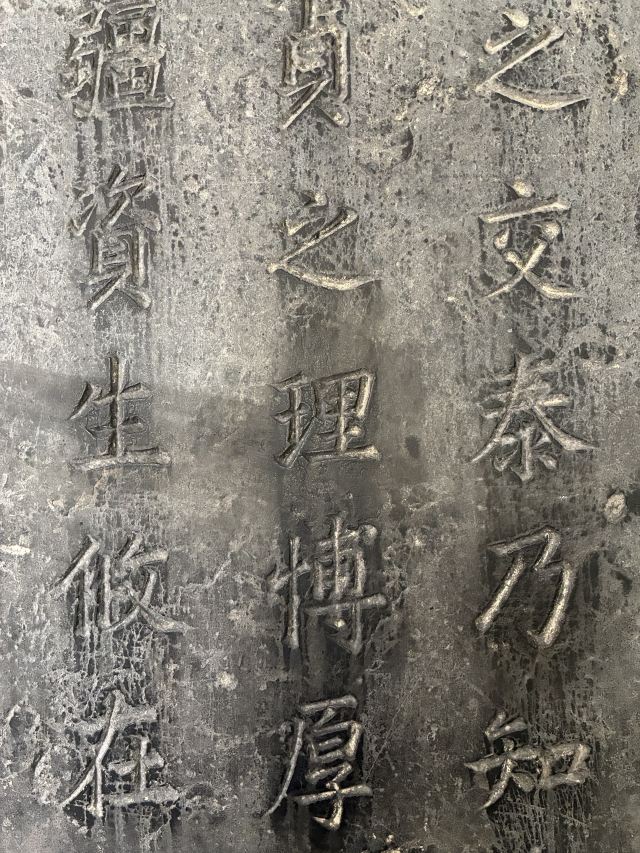 之交泰乃知
貞之理博厚
疆資生攸在